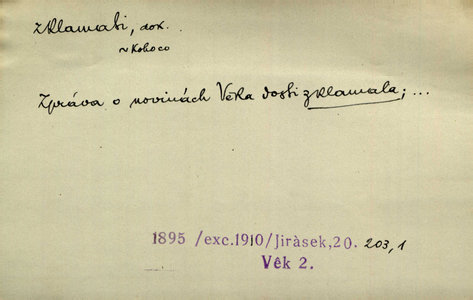 zklamati, dok.
~ koho co
Zpráva o novinách Věka dosti zklamala; ...
1895 /exc.1910/Jiràsek,20. 203,1
Vêk 2.